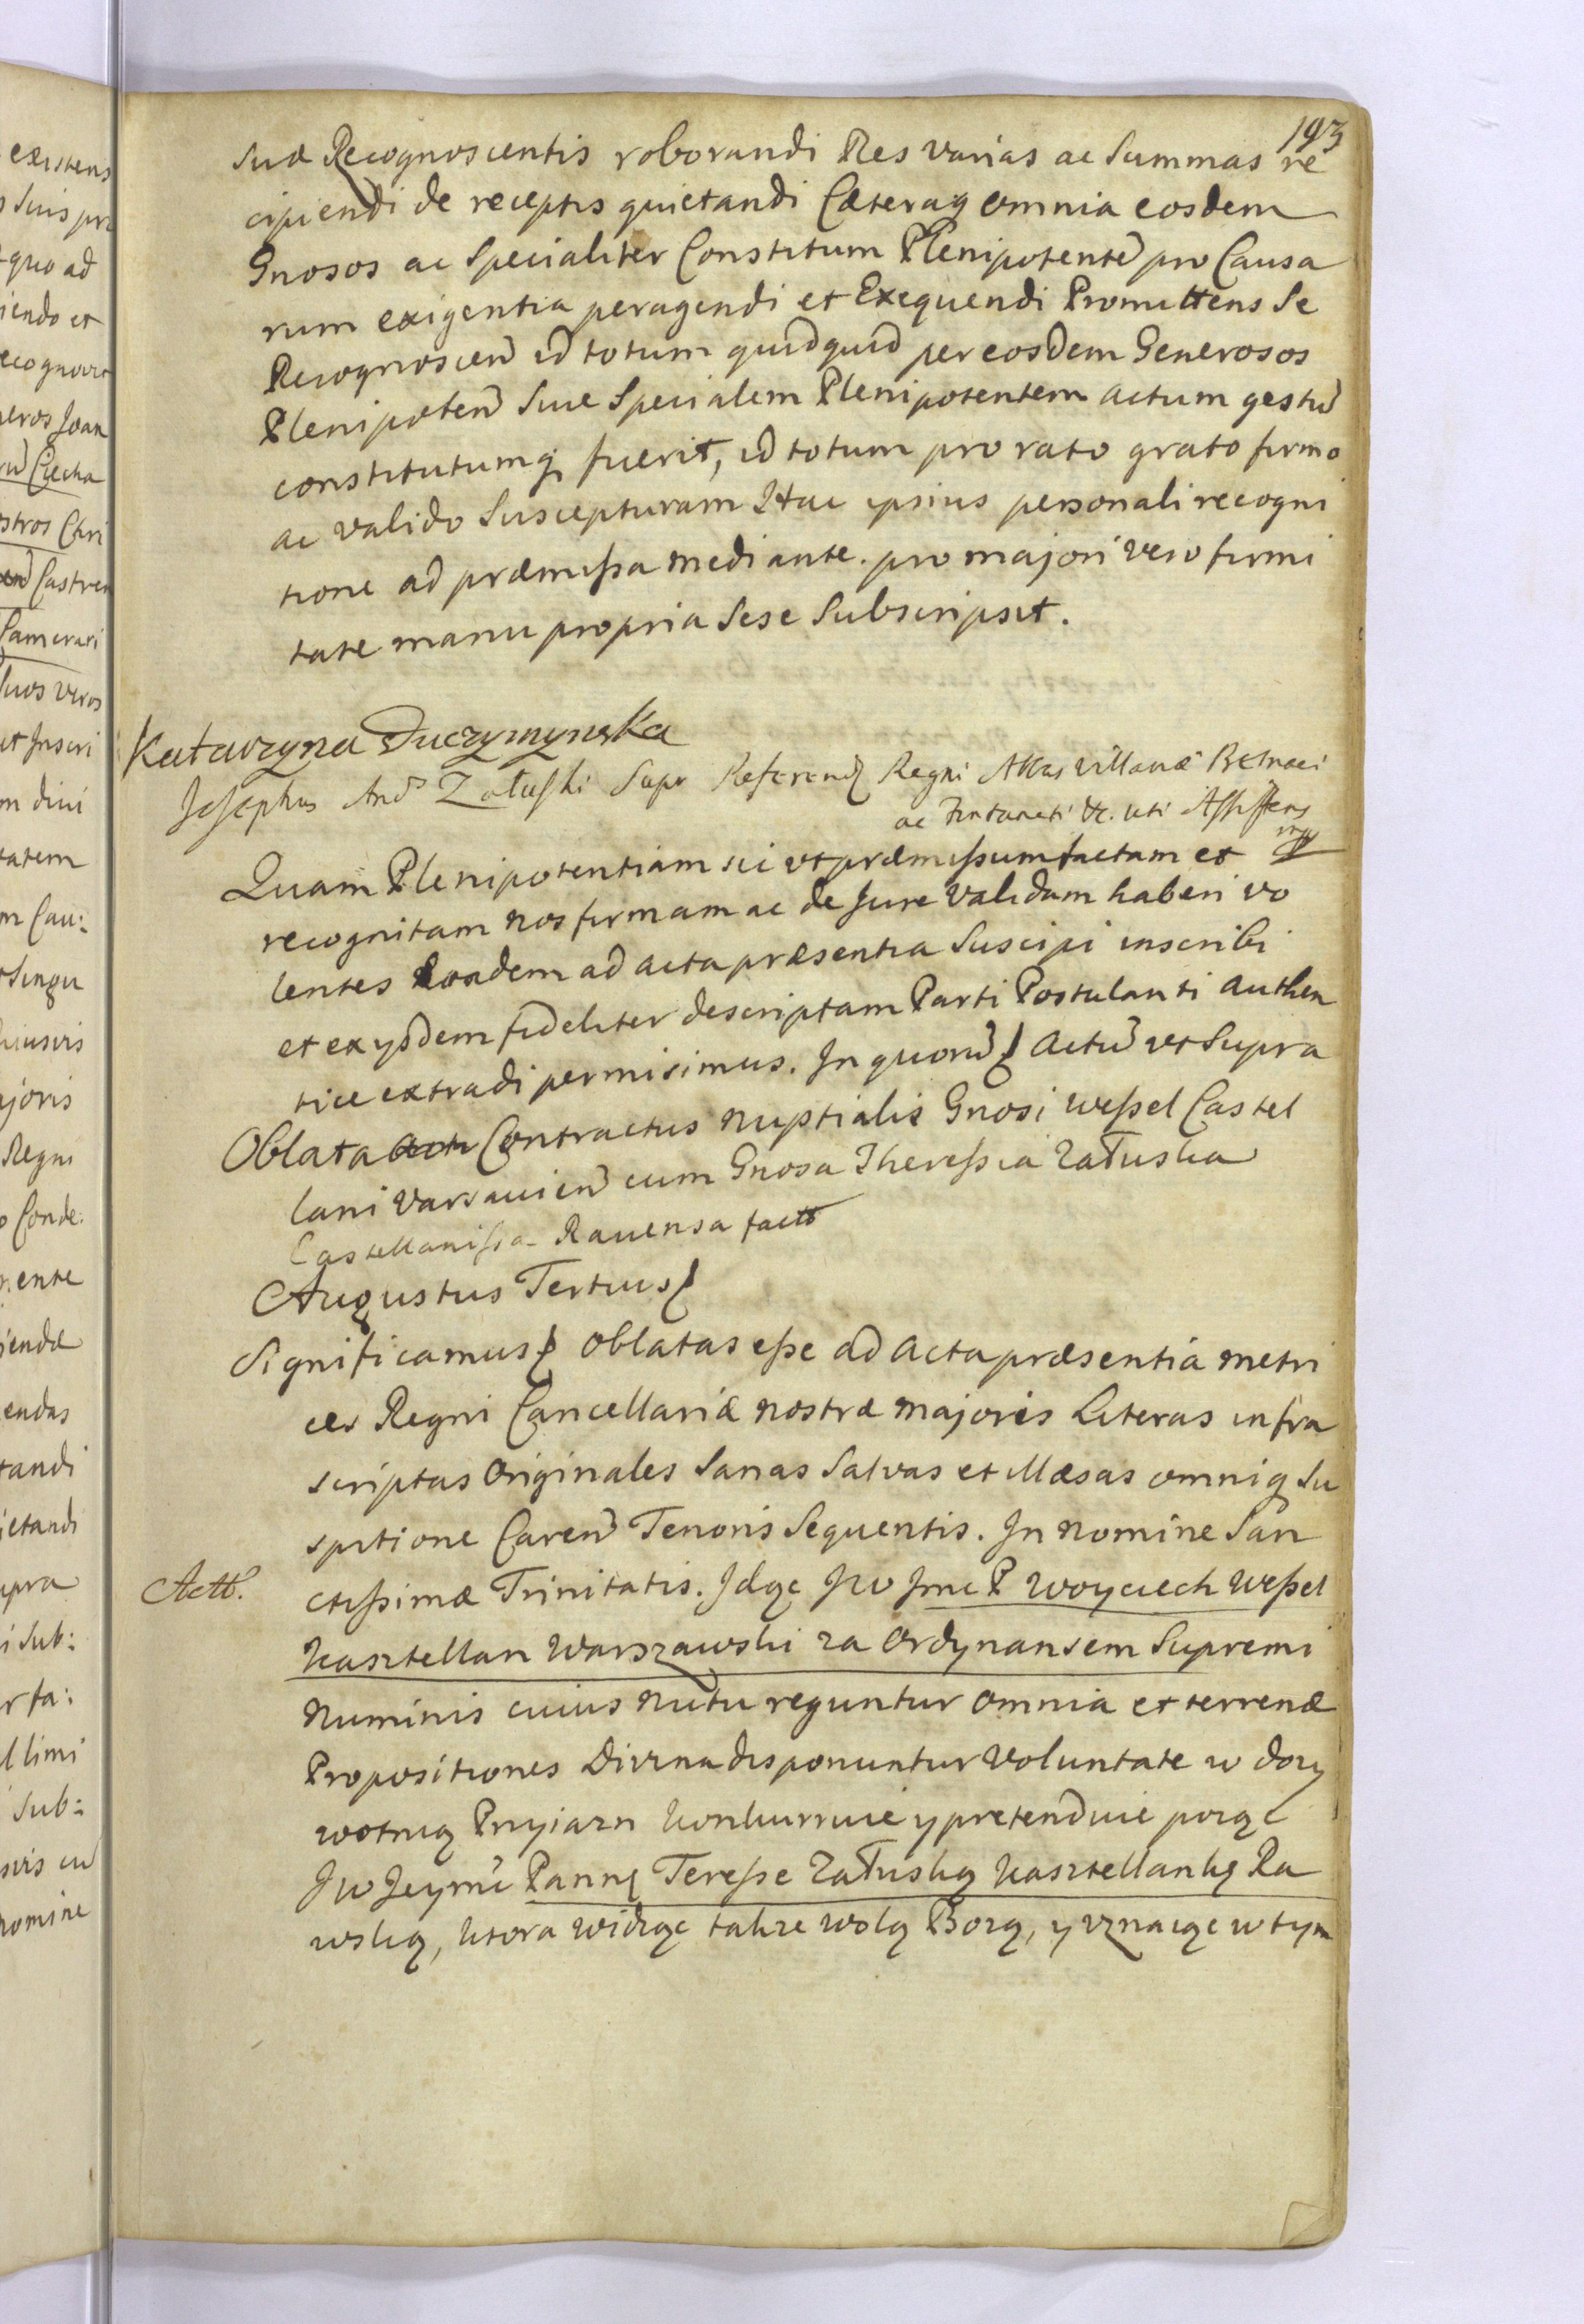 193
Suæ Recognoscentis roborandi Res varias ac Summas re
cipiendi de receptis quietandi Cæteraq omnia eosdem
Gnosos ac Specialiter Constitum Plenipotentem pro Causa
rum exigentia peragendi et Exequendi Promittens Se
Recognoscen id totum quidquid per eosdem Generosos
Plenipoten Sive Specialem Plenipotentem actum gestu
constitutumq fuerit, id totum pro rato grato firmo
ac valido Suscepturam Hac ipsius personali recogni
tione ad præmißa mediante. pro majori vero firmi
tate manu propria Sese Subscripsit.
Katarzyna Duczymynska
Josephus And Załuski Supr Referend Regni Abbas Villanæ Betnaei
ac Fontaneti &c. uti Assistens
mp
Quam Plenipotentiam sic ut præmißum factam et
recognitam nos firmam ac de Jure validam haberi vo
lentes Eandem ad acta præsentia Suscipi inscribi
et ex ysdem fideliter descriptam Parti Postulanti authen
tice extradi permisimus. In quorū Actū ut Supra
Oblata Contractus nuptialis Gnosi Weßel Castel
lani Varsavien cum Gnosa Thereßia Załuska
Castellanißa Ravensa facto
Augustus Tertius
Significamus Oblatas eße ad Acta præsentia metri
ces Regni Cancellariæ nostræ majoris Literas infra
scriptas Originales Sanas Salvas et illæsas omniq Su
spitione Caren Tenoris Sequentis. In nomine San
Actt.
ctißimæ Trinitatis. Idąc JW Jmc P Woyciech Weßel
Kasztellan Warszawski za Ordynansem Supremi
Numinis cuius nutu reguntur omnia et terrenæ
Propositiones Divina disponuntur Voluntate w doży
wotnią Przyiazn konkurruie y pretenduie poząc
JW Jeymc Pannę Tereße Załuską Kasztellankę Ra
wską, ktora widząc takze wolą Bozą, y uznaiąc w tym